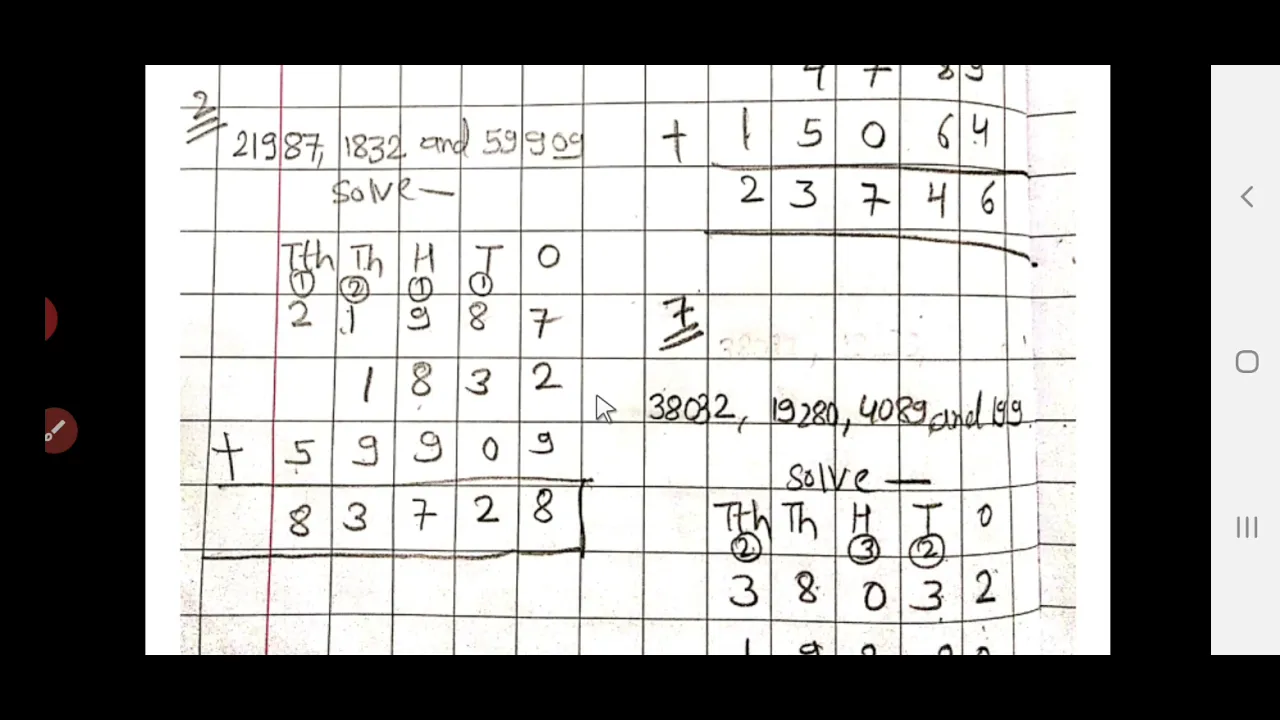 2
21987, 1832 and 59909
Solve —
Tth Th H T O
① ② ① ①
2 1 9 8 7
1 8 3 2
+ 5 9 9 0 9
8 3 7 2 8
4 7 8 9
+ 1 5 0 6 4
2 3 7 4 6
7
38032, 19280, 4089 and 199.
Solve —
Tth Th H T O
② ③ ②
3 8 0 3 2